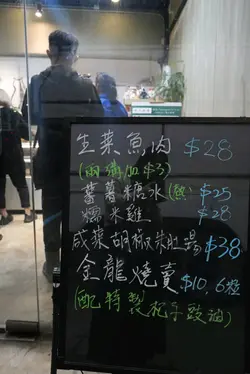 生菜魚肉 $28
(兩溝加$3)
蕃薯糖水(熱) $25
糯米雞 $28
咸菜胡椒豬肚湯 $38
金龍燒賣 $10,6粒
(配特製松子豉油)